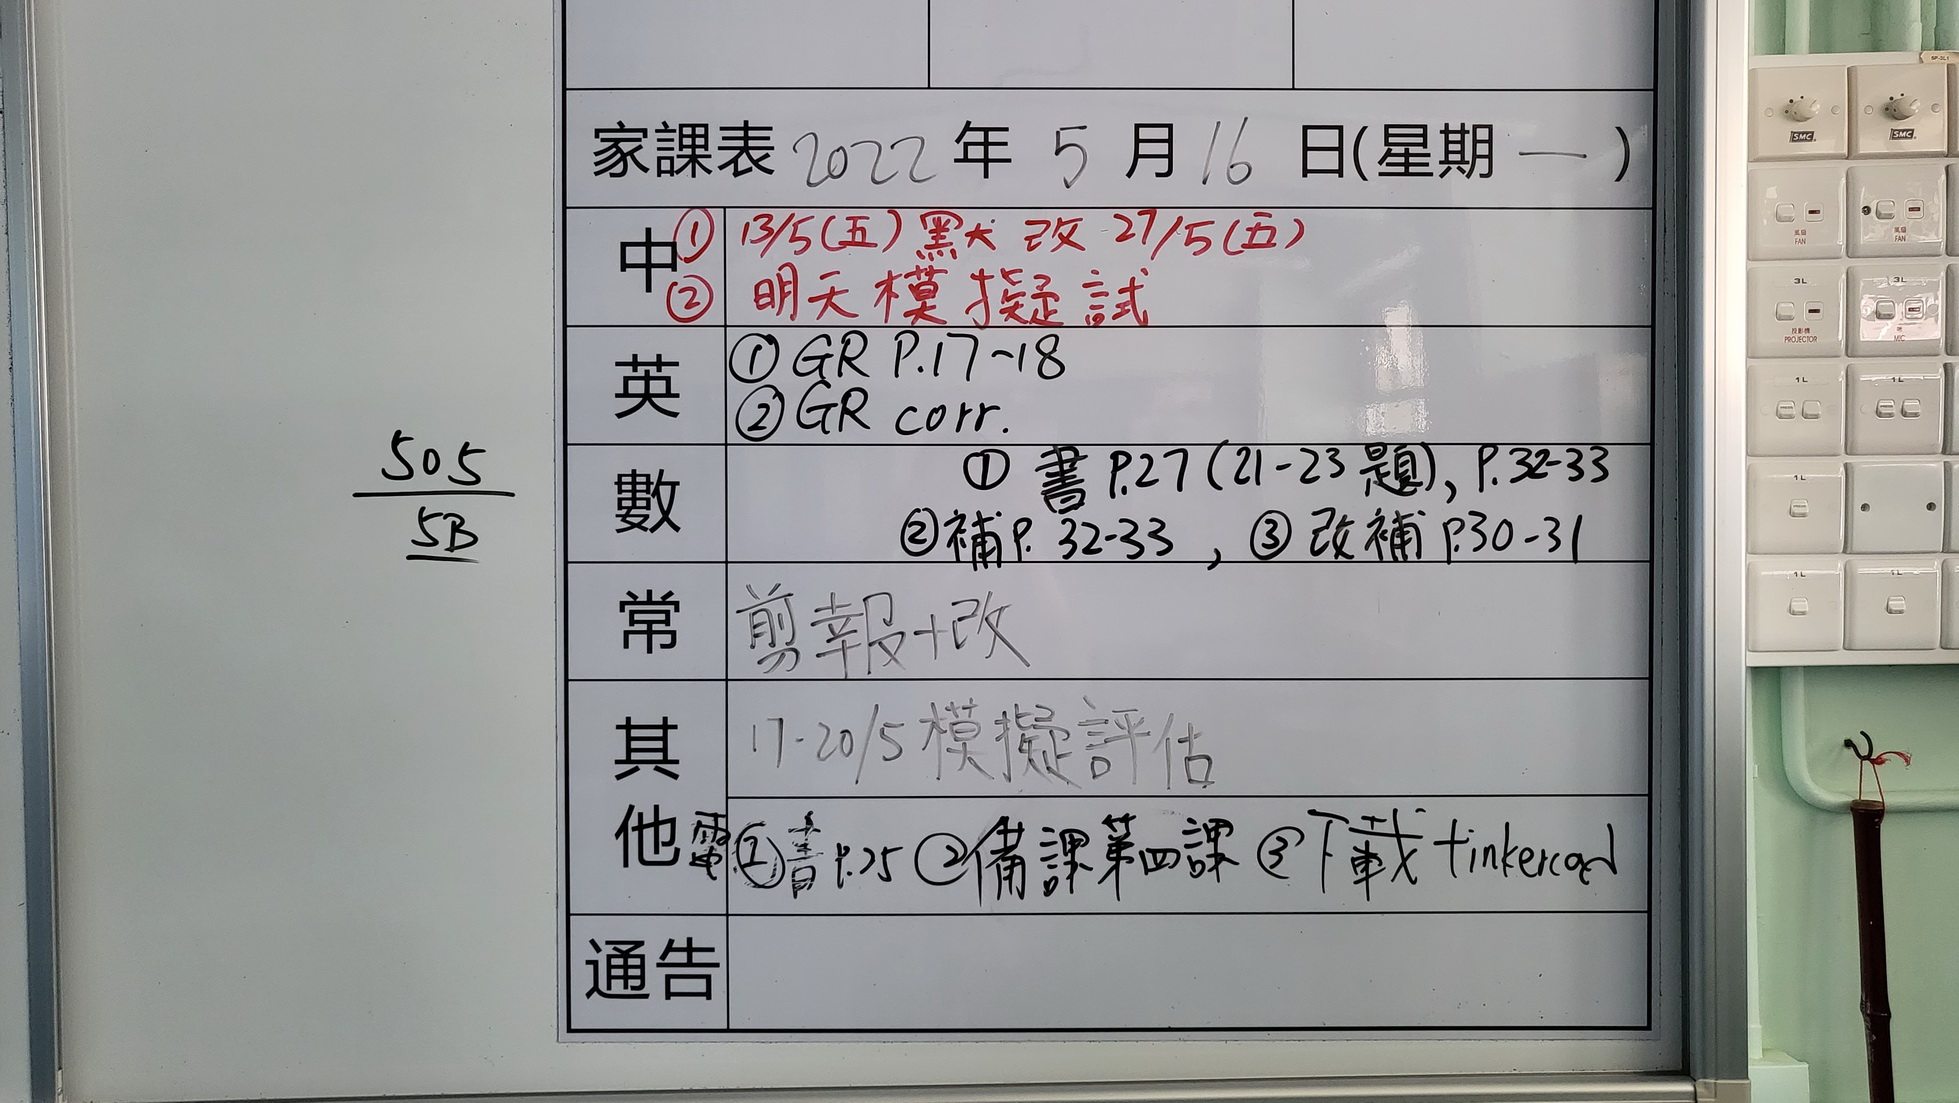 家課表 2022 年 5 月 16 日(星期 一 )
中 ① 13/5(五) 默 改 27/5(五)
② 明天模擬試
英 ① GR P.17-18
② GR corr.
數 ① 書 P.27 (21-23 題), P.32-33
② 補 P. 32-33 , ③ 改補 P.30-31
常 剪報+改
其他 17-20/5 模擬評估
電 ① 書 P.25 ② 備課第四課 ③ 下載 tinkercad
通告
505
5B
SMC
SMC
風扇
FAN
風扇
FAN
3L
3L
投影機
PROJECTOR
MIC
1L
1L
1L
1L
1L